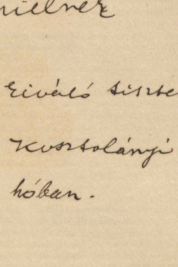 kiváló tiszte
Kosztolányi
hóban.